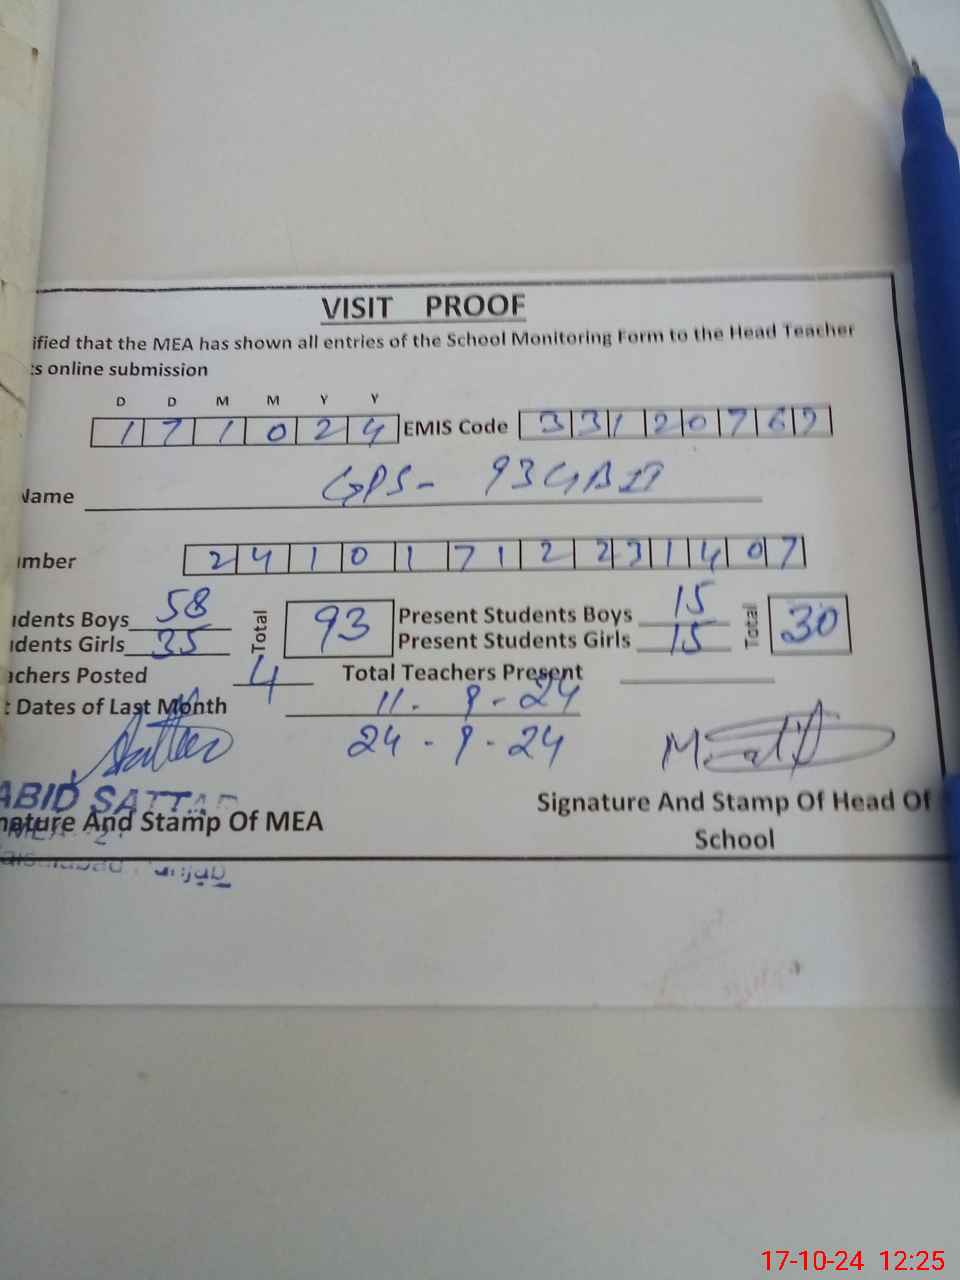 VISIT PROOF
ified that the MEA has shown all entries of the School Monitoring Form to the Head Teacher
ts online submission
D D M M Y Y
1 7 1 0 2 4 EMIS Code 3 3 1 2 0 7 6 9
Name GPS- 93GBII
umber 2 4 1 0 1 7 1 2 2 3 1 4 0 7
udents Boys 58 Total 93 Present Students Boys 15 Total 30
udents Girls 35 Present Students Girls 15
achers Posted 4 Total Teachers Present
t Dates of Last Month 11. 9 - 24
24 - 9 - 24
ABID SATTAR
nature And Stamp Of MEA
Signature And Stamp Of Head Of
School
Punjab
17-10-24 12:25